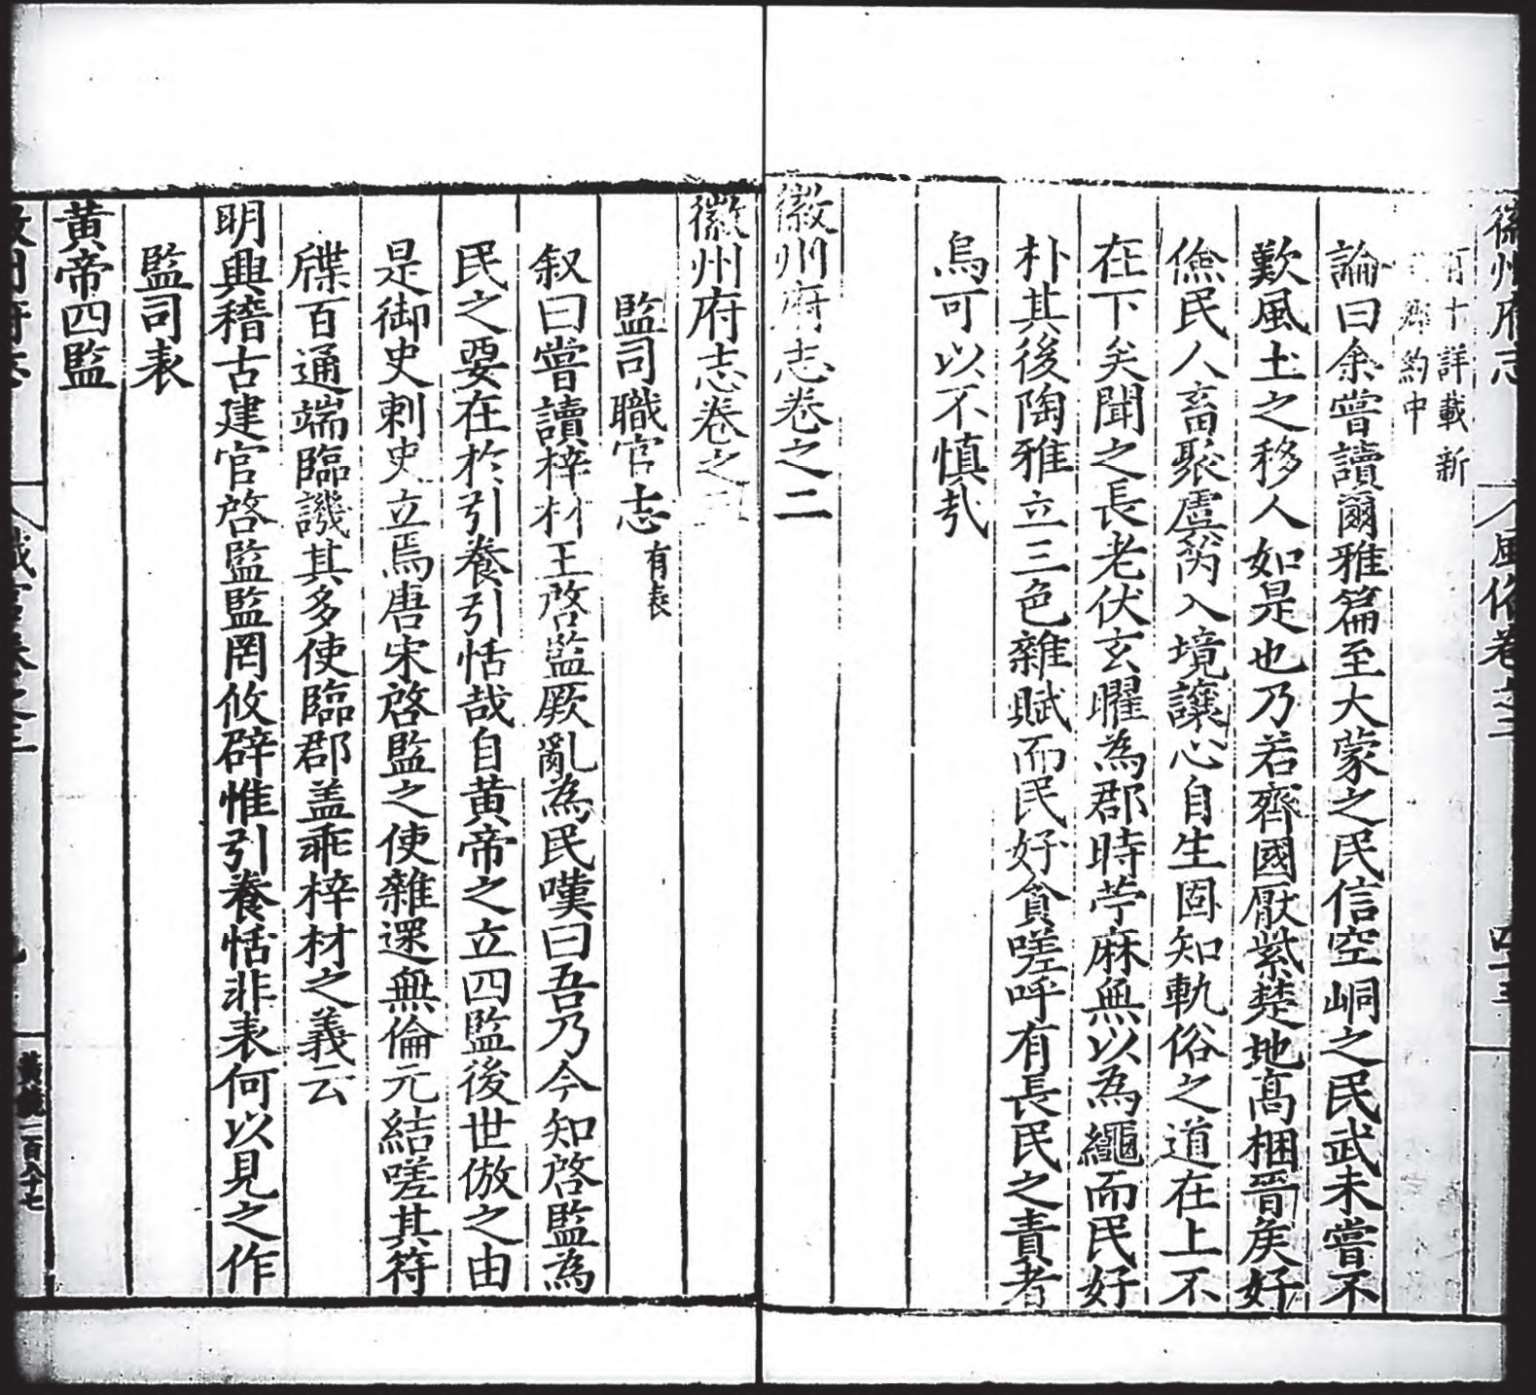 徽州府志
風俗卷之二
有十詳載新
鄉約中
論曰余嘗讀爾雅篇至大蒙之民信空峒之民武未嘗不
歎風土之移人如是也乃若齊國厭紫楚地高梱晉矦好
儉民人畜聚虛芮入境讓心自生固知軌俗之道在上不
在下矣聞之長老伏玄曜為郡時苧麻無以為繩而民好
朴其後陶雅立三色雜賦而民好貪嗟呼有長民之責者
烏可以不慎哉
徽州府志卷之二
徽州府志卷之
監司職官志有表
叙曰嘗讀梓材王啓監厥亂為民嘆曰吾乃今知啓監為
民之要在於引養引恬哉自黄帝之立四監後世倣之由
是御史刺史立焉唐宋啓監之使雜遝無倫元結嗟其符
牒百通端臨譏其多使臨郡盖乖梓材之義云
明興稽古建官啓監監罔攸辟惟引養恬非表何以見之作
監司表
黄帝四監
職官卷之三
黄 一百八十七